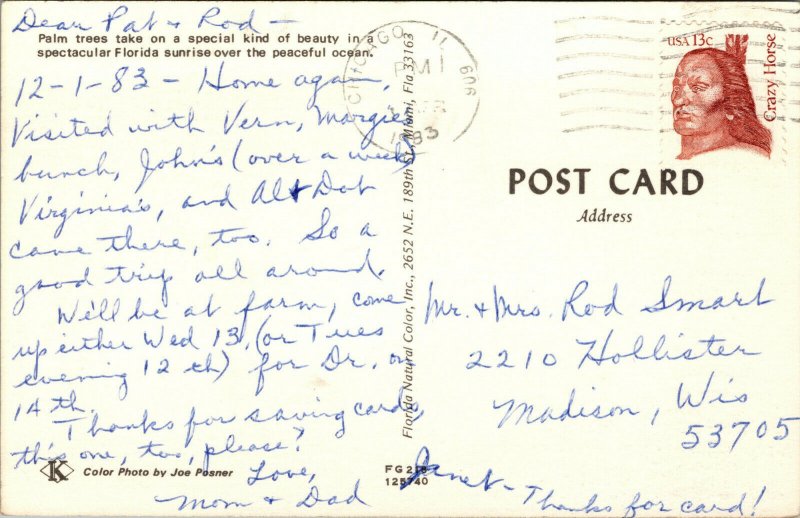 Dear Pat & Rod -
Palm trees take on a special kind of beauty in a
spectacular Florida sunrise over the peaceful ocean.
12-1-83 - Home again.
Visited with Vern, Margie
bunch, John's (over a week)
Virginia's, and Al & Dot
came there, too. So a
good trip all around.
We'll be at farm, come
up either Wed 13, (or Tues
evening 12 th) for Dr. on
14 th.
Thanks for saving cards,
this one, too, please?
Love,
Mom & Dad
K
Color Photo by Joe Posner
FG
125740
Florida Natural Color, Inc., 2652 N.E. 189th St., Miami, Fla 33163
CHICAGO IL 606
PM
1983
USA 13c
Crazy Horse
POST CARD
Address
Mr. & Mrs. Rod Smart
2210 Hollister
Madison, Wis
53705
Janet - Thanks for card!